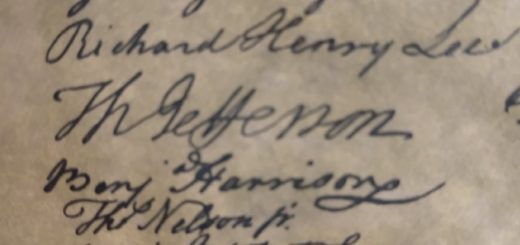 Richard Henry Lee
Th Jefferson
Benj.ᵃ Harrison
Thoˢ Nelson jr.